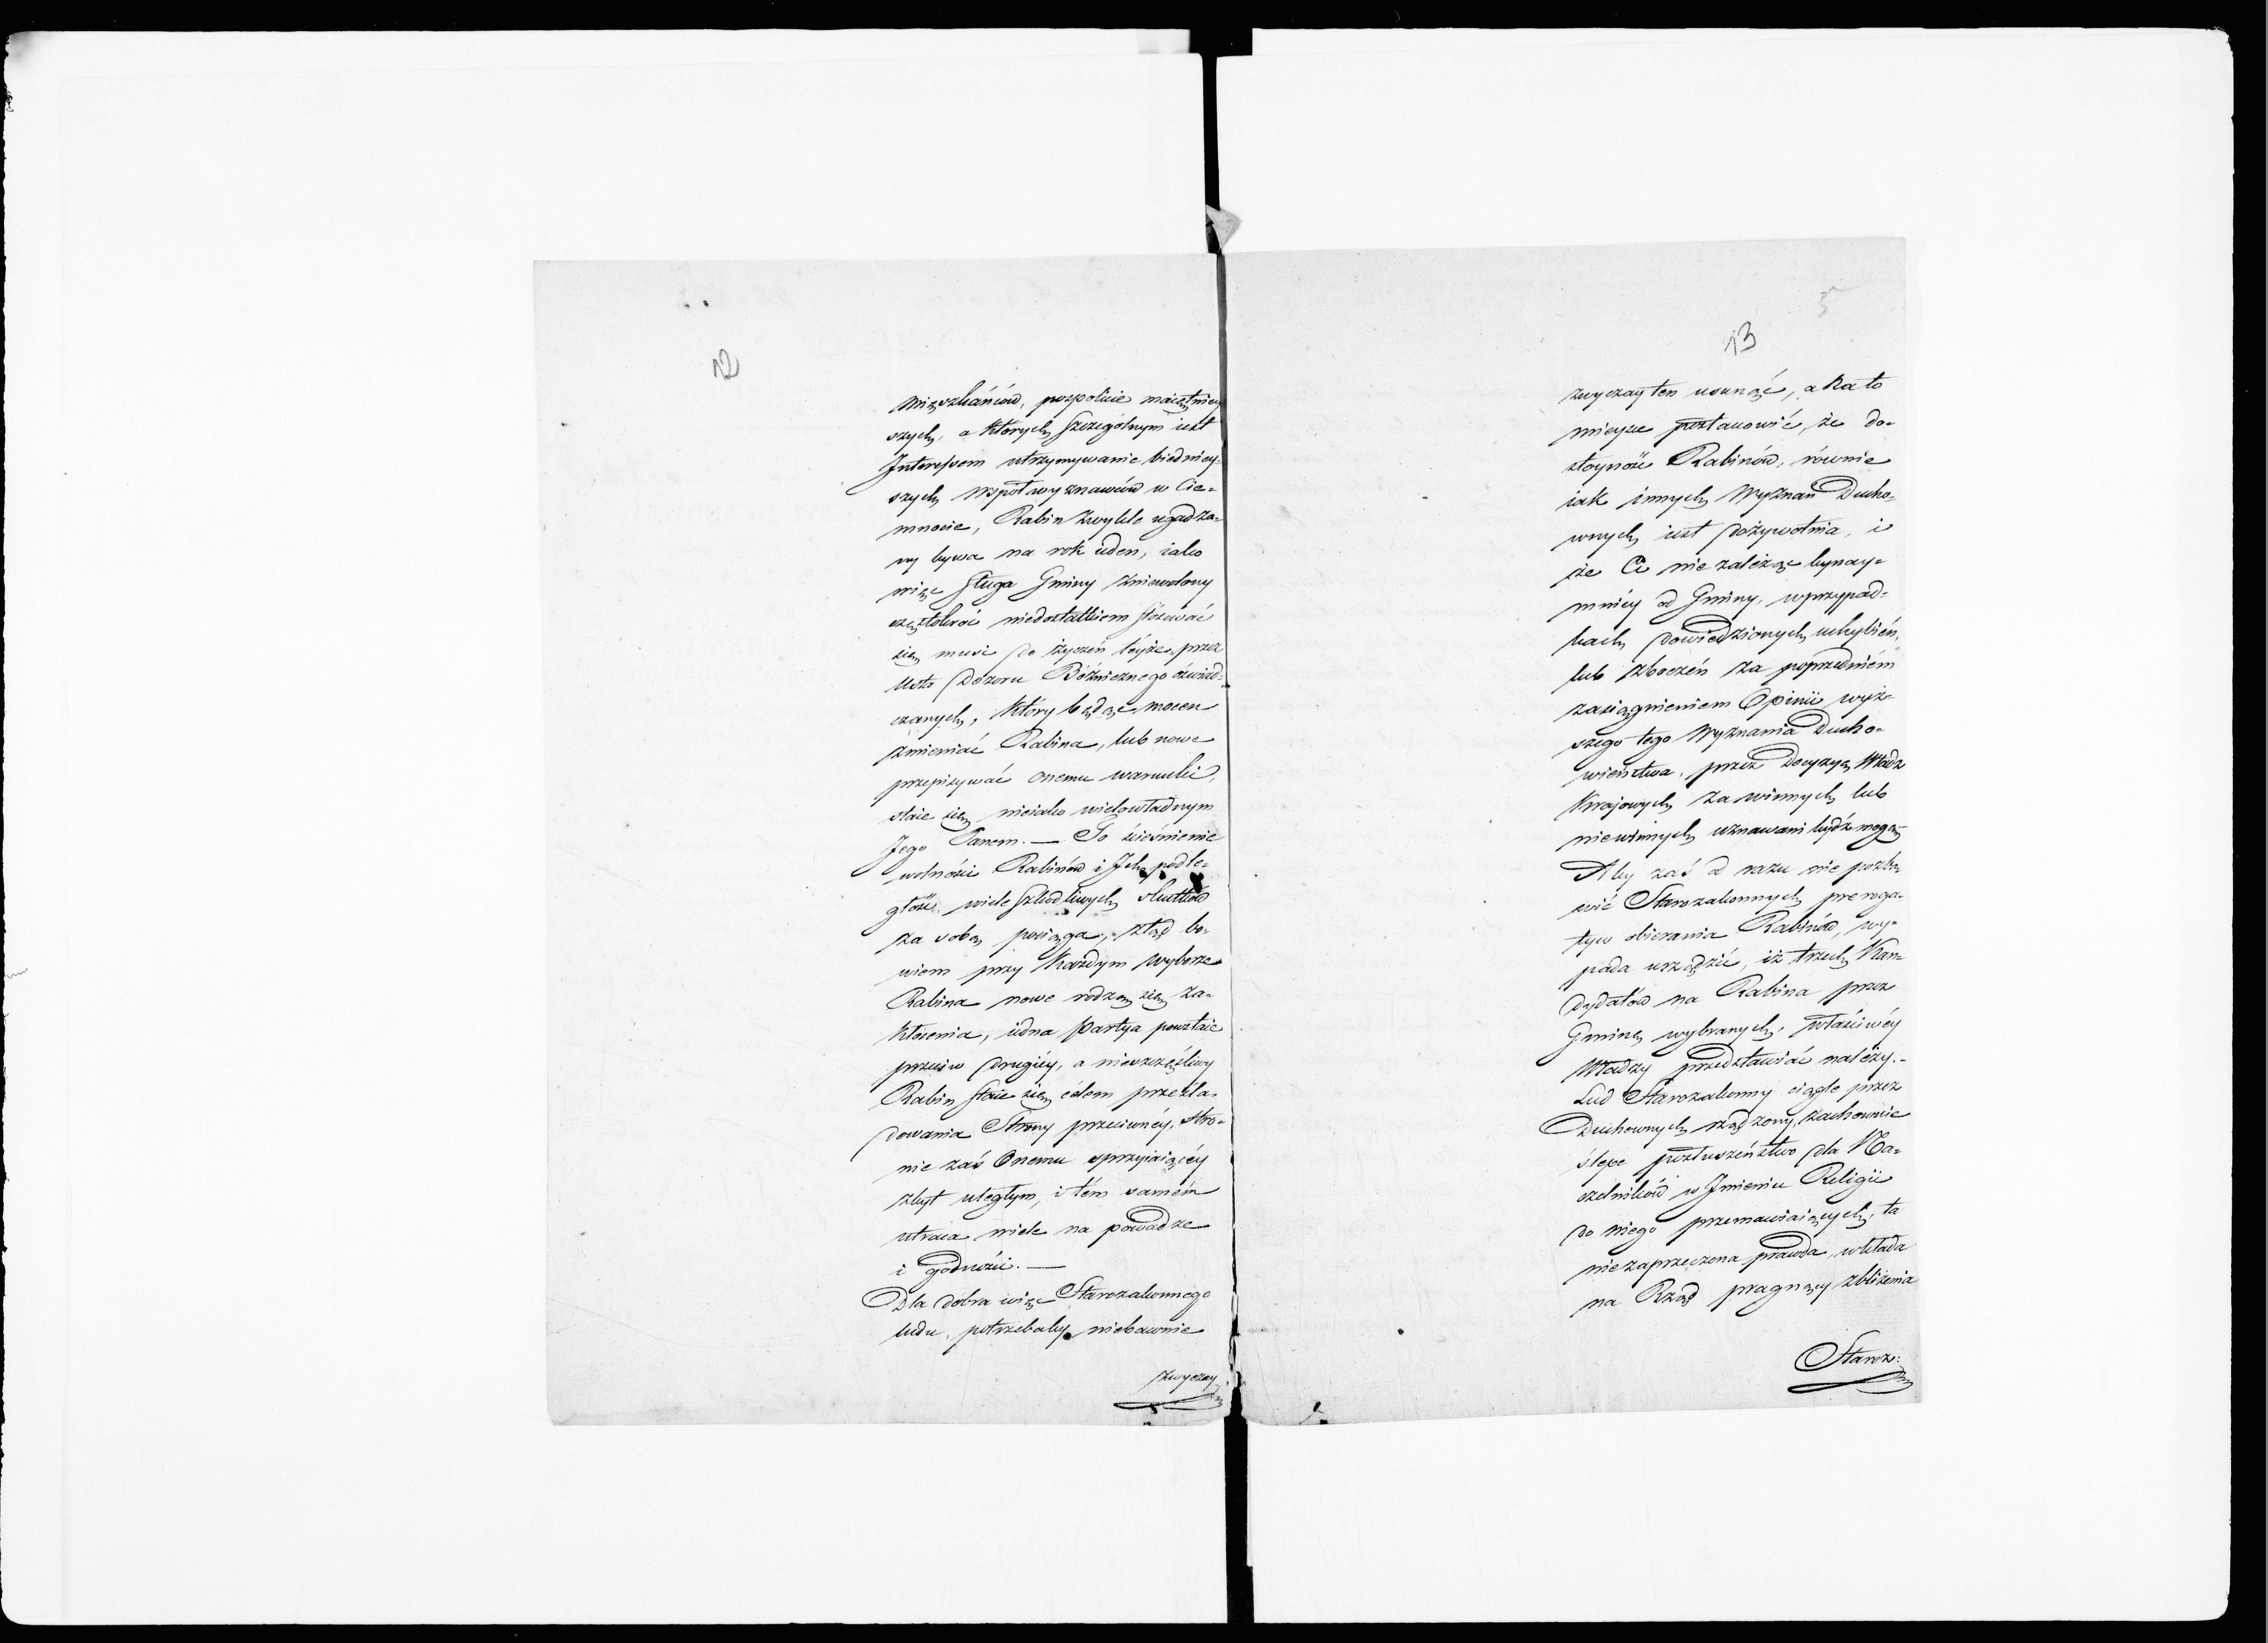 12
Mięszkańców, pospolicie maiętniey
szych, a których szczególnym iest
Interessem utrzymywanie biedniey-
szych Wspołwyznawców w Cie-
mnocie, Rabin zwykle ugadza-
ny bywa na rok ieden, iako
więc sługa Gminy zniewolony
częstokroć niedostatkiem stósować
się musi do życzeń teyże, przez
Usta Dozoru Bóżnicznego oświad-
czanych, który będąc mocen
zmieniać Rabina, lub nowe
przepisywać onemu warunki,
staie się nieiako wielowładnym
Jego Panem. — To ścieśnienie
wolności Rabinów i Jch podle-
głość, wiele szkodliwych skutków
za sobą pociąga, ztąd bo-
wiem przy każdym wyborze
Rabina nowe rodzą się za-
kłócenia, iedna Partya powstaie
przeciw drugiéy, a nieszczęśliwy
Rabin staie się celem prześla-
dowania Strony przeciwnéy, stro-
nie zaś Onemu sprzyiaiącéy
zbyt uległym, i tém samém
utraca wiele na powadze
i godności. —
Dla dobra więc Starozakonnego
ludu, potrzebaby niebawnie
zwyczay
5
13
zwyczay ten usunąć, a Na to
mieysce postanowić, że do-
stoyność Rabinów, równie
iak innych Wyznań Ducho-
wnych iest dożywotnia, i
że Ci nie zależąc bynay-
mniéy od Gminy, w przypad-
kach dowiedzionych uchybień,
lub zboczeń za poprzedniém
zasiągnieniem Opinii wyż-
szego tego Wyznania Ducho-
wieństwa, przez Decyzyą Władz
Kraiowych za winnych lub
niewinnych uznawani bydź mogą
Aby zaś od razu nie pozba-
wić Starozakonnych preroga-
tyw obierania Rabinów, wy-
pada urządzić, iż trzech Kan-
dydatów na Rabina przez
Gminę wybranych, właściwéy
Władzy przedstawiać należy. -
Lud Starozakonny ciągle przez
Duchownych rządzony, zachownie
ślepe posłuszeństwo dla Na-
czelników w Jmieniu Religii
do niego przemawiaiących, ta
niezaprzeczona prawda, wkłada
na Rząd pragnący zbliżenia
Staroz: